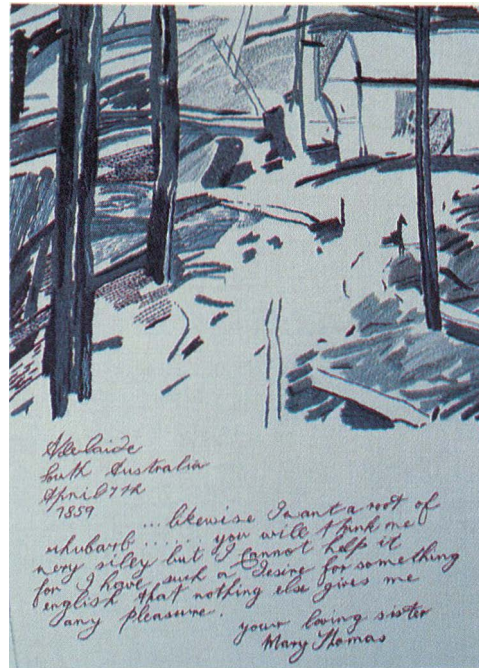 Adelaide
South Australia
April 27th
1859
...likewise I want a root of
rhubarb ...... you will think me
very silly but I cannot help it
for I have such a desire for something
english that nothing else gives me
any pleasure.
your loving sister
Mary Thomas